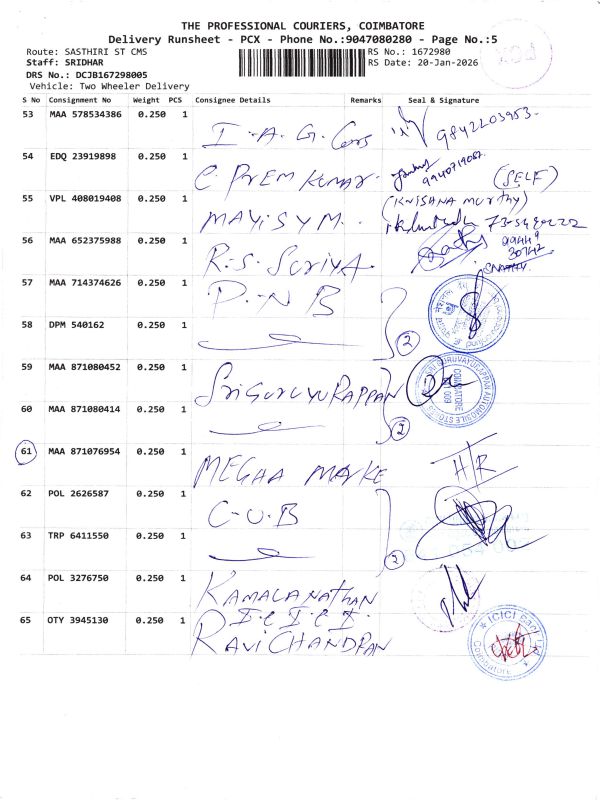 THE PROFESSIONAL COURIERS, COIMBATORE
Delivery Runsheet - PCX - Phone No.:9047080280 - Page No.:5
Route: SASTHIRI ST CMS
RS No.: 1672980
Staff: SRIDHAR
RS Date: 20-Jan-2026
DRS No.: DCJB167298005
Vehicle: Two Wheeler Delivery
S No Consignment No Weight PCS Consignee Details Remarks Seal & Signature
53 MAA 578534386 0.250 1 I-A.G. 9842203953-
54 EDQ 23919898 0.250 1 C. PREM KUMAR. (SELF)
55 VPL 408019408 0.250 1 MAYISYM.
56 MAA 652375988 0.250 1 R.S. SURIYA.
57 MAA 714374626 0.250 1 P.-N B
58 DPM 540162 0.250 1 2
59 MAA 871080452 0.250 1 SRIGURUYURAPPAN
60 MAA 871080414 0.250 1 2
61 MAA 871076954 0.250 1 MEGHA MARKE H/R
62 POL 2626587 0.250 1 C-U.B
63 TRP 6411550 0.250 1 2
64 POL 3276750 0.250 1 KAMALANATHAN
65 OTY 3945130 0.250 1 I.C.I.C.I.
RAVI CHANDRAN
ICICI Bank Ltd
Coimbatore